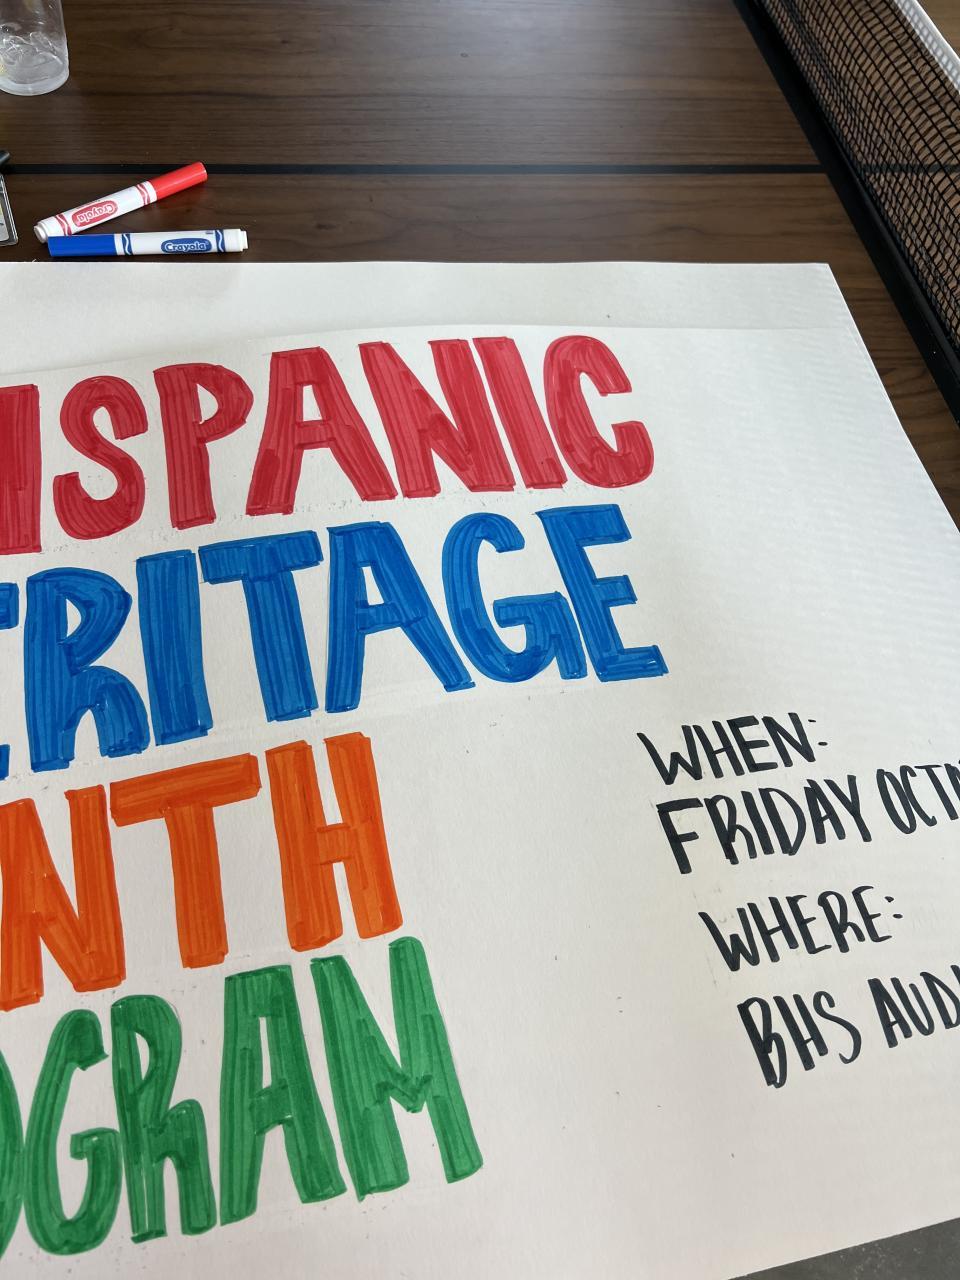 Crayola
Crayola
HISPANIC
ERITAGE
NTH
OGRAM
WHEN:
FRIDAY OCTO
WHERE:
BHS AUDI